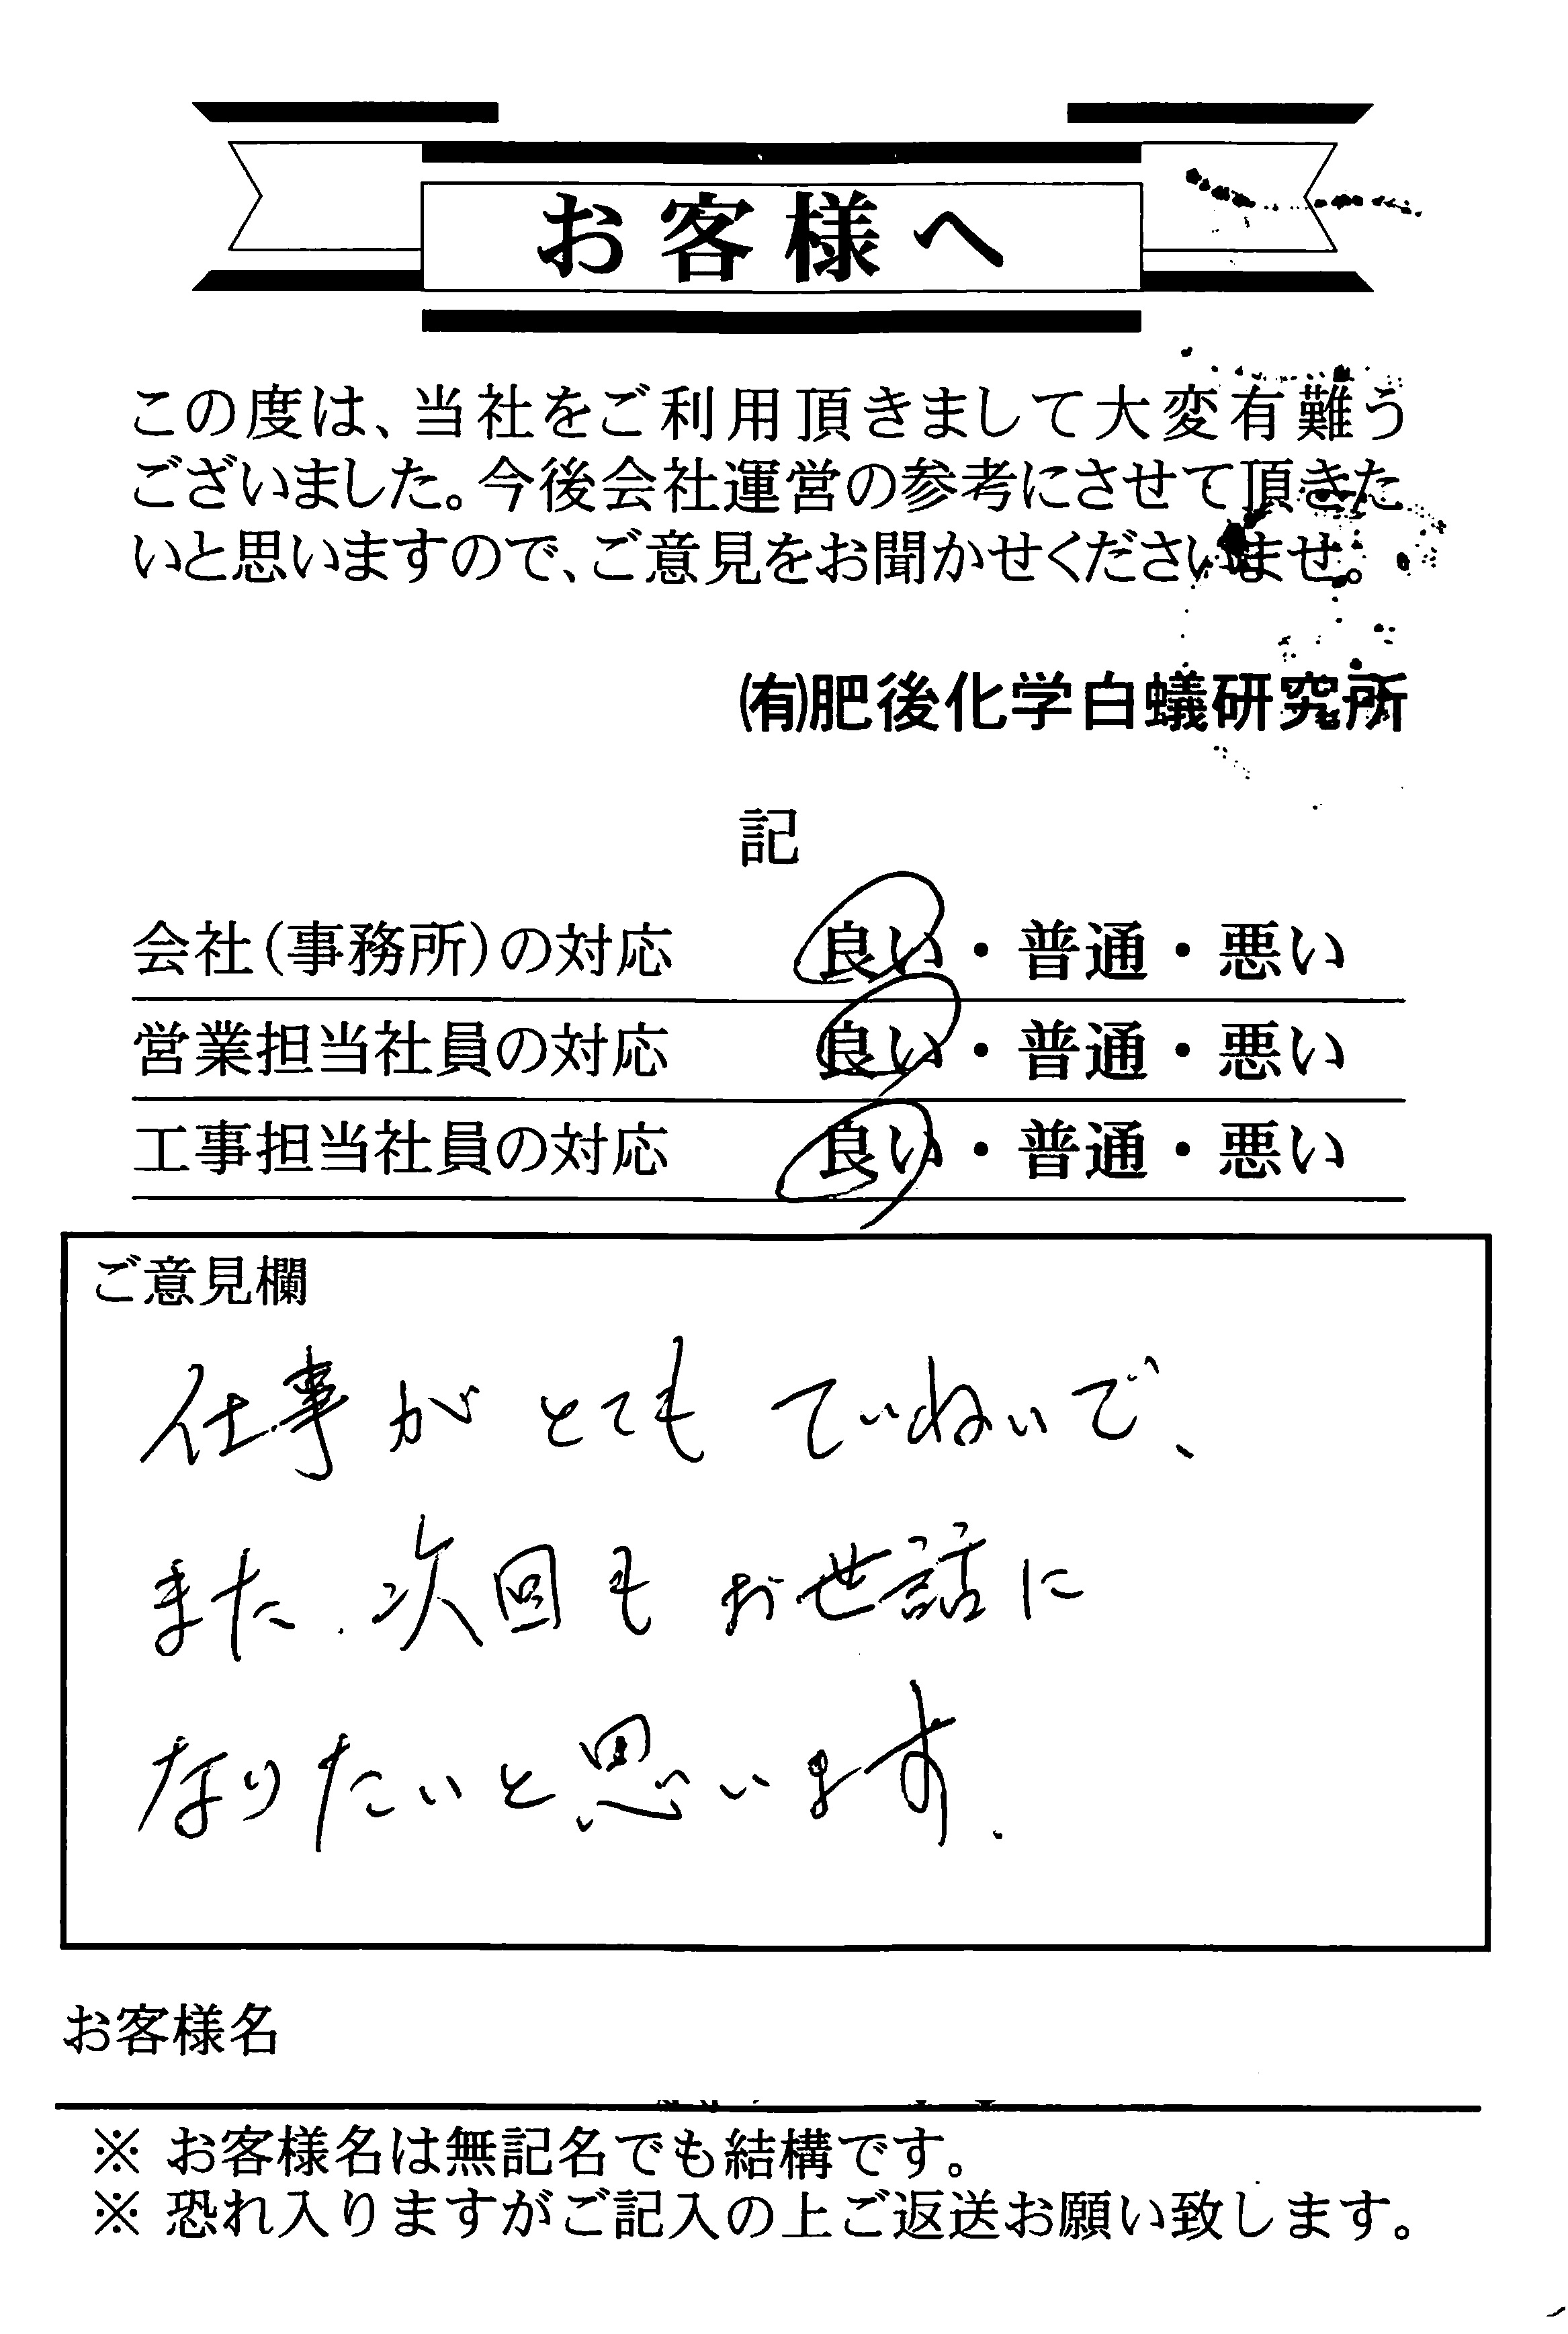 お客様へ
この度は、当社をご利用頂きまして大変有難う
ございました。今後会社運営の参考にさせて頂きた
いと思いますので、ご意見をお聞かせくださいませ。
㈲肥後化学白蟻研究所
記
会社(事務所)の対応 良い・普通・悪い
営業担当社員の対応 良い・普通・悪い
工事担当社員の対応 良い・普通・悪い
ご意見欄
仕事がとてもていねいで、
また、次回もお世話に
なりたいと思います.
お客様名
※ お客様名は無記名でも結構です。
※ 恐れ入りますがご記入の上ご返送お願い致します。